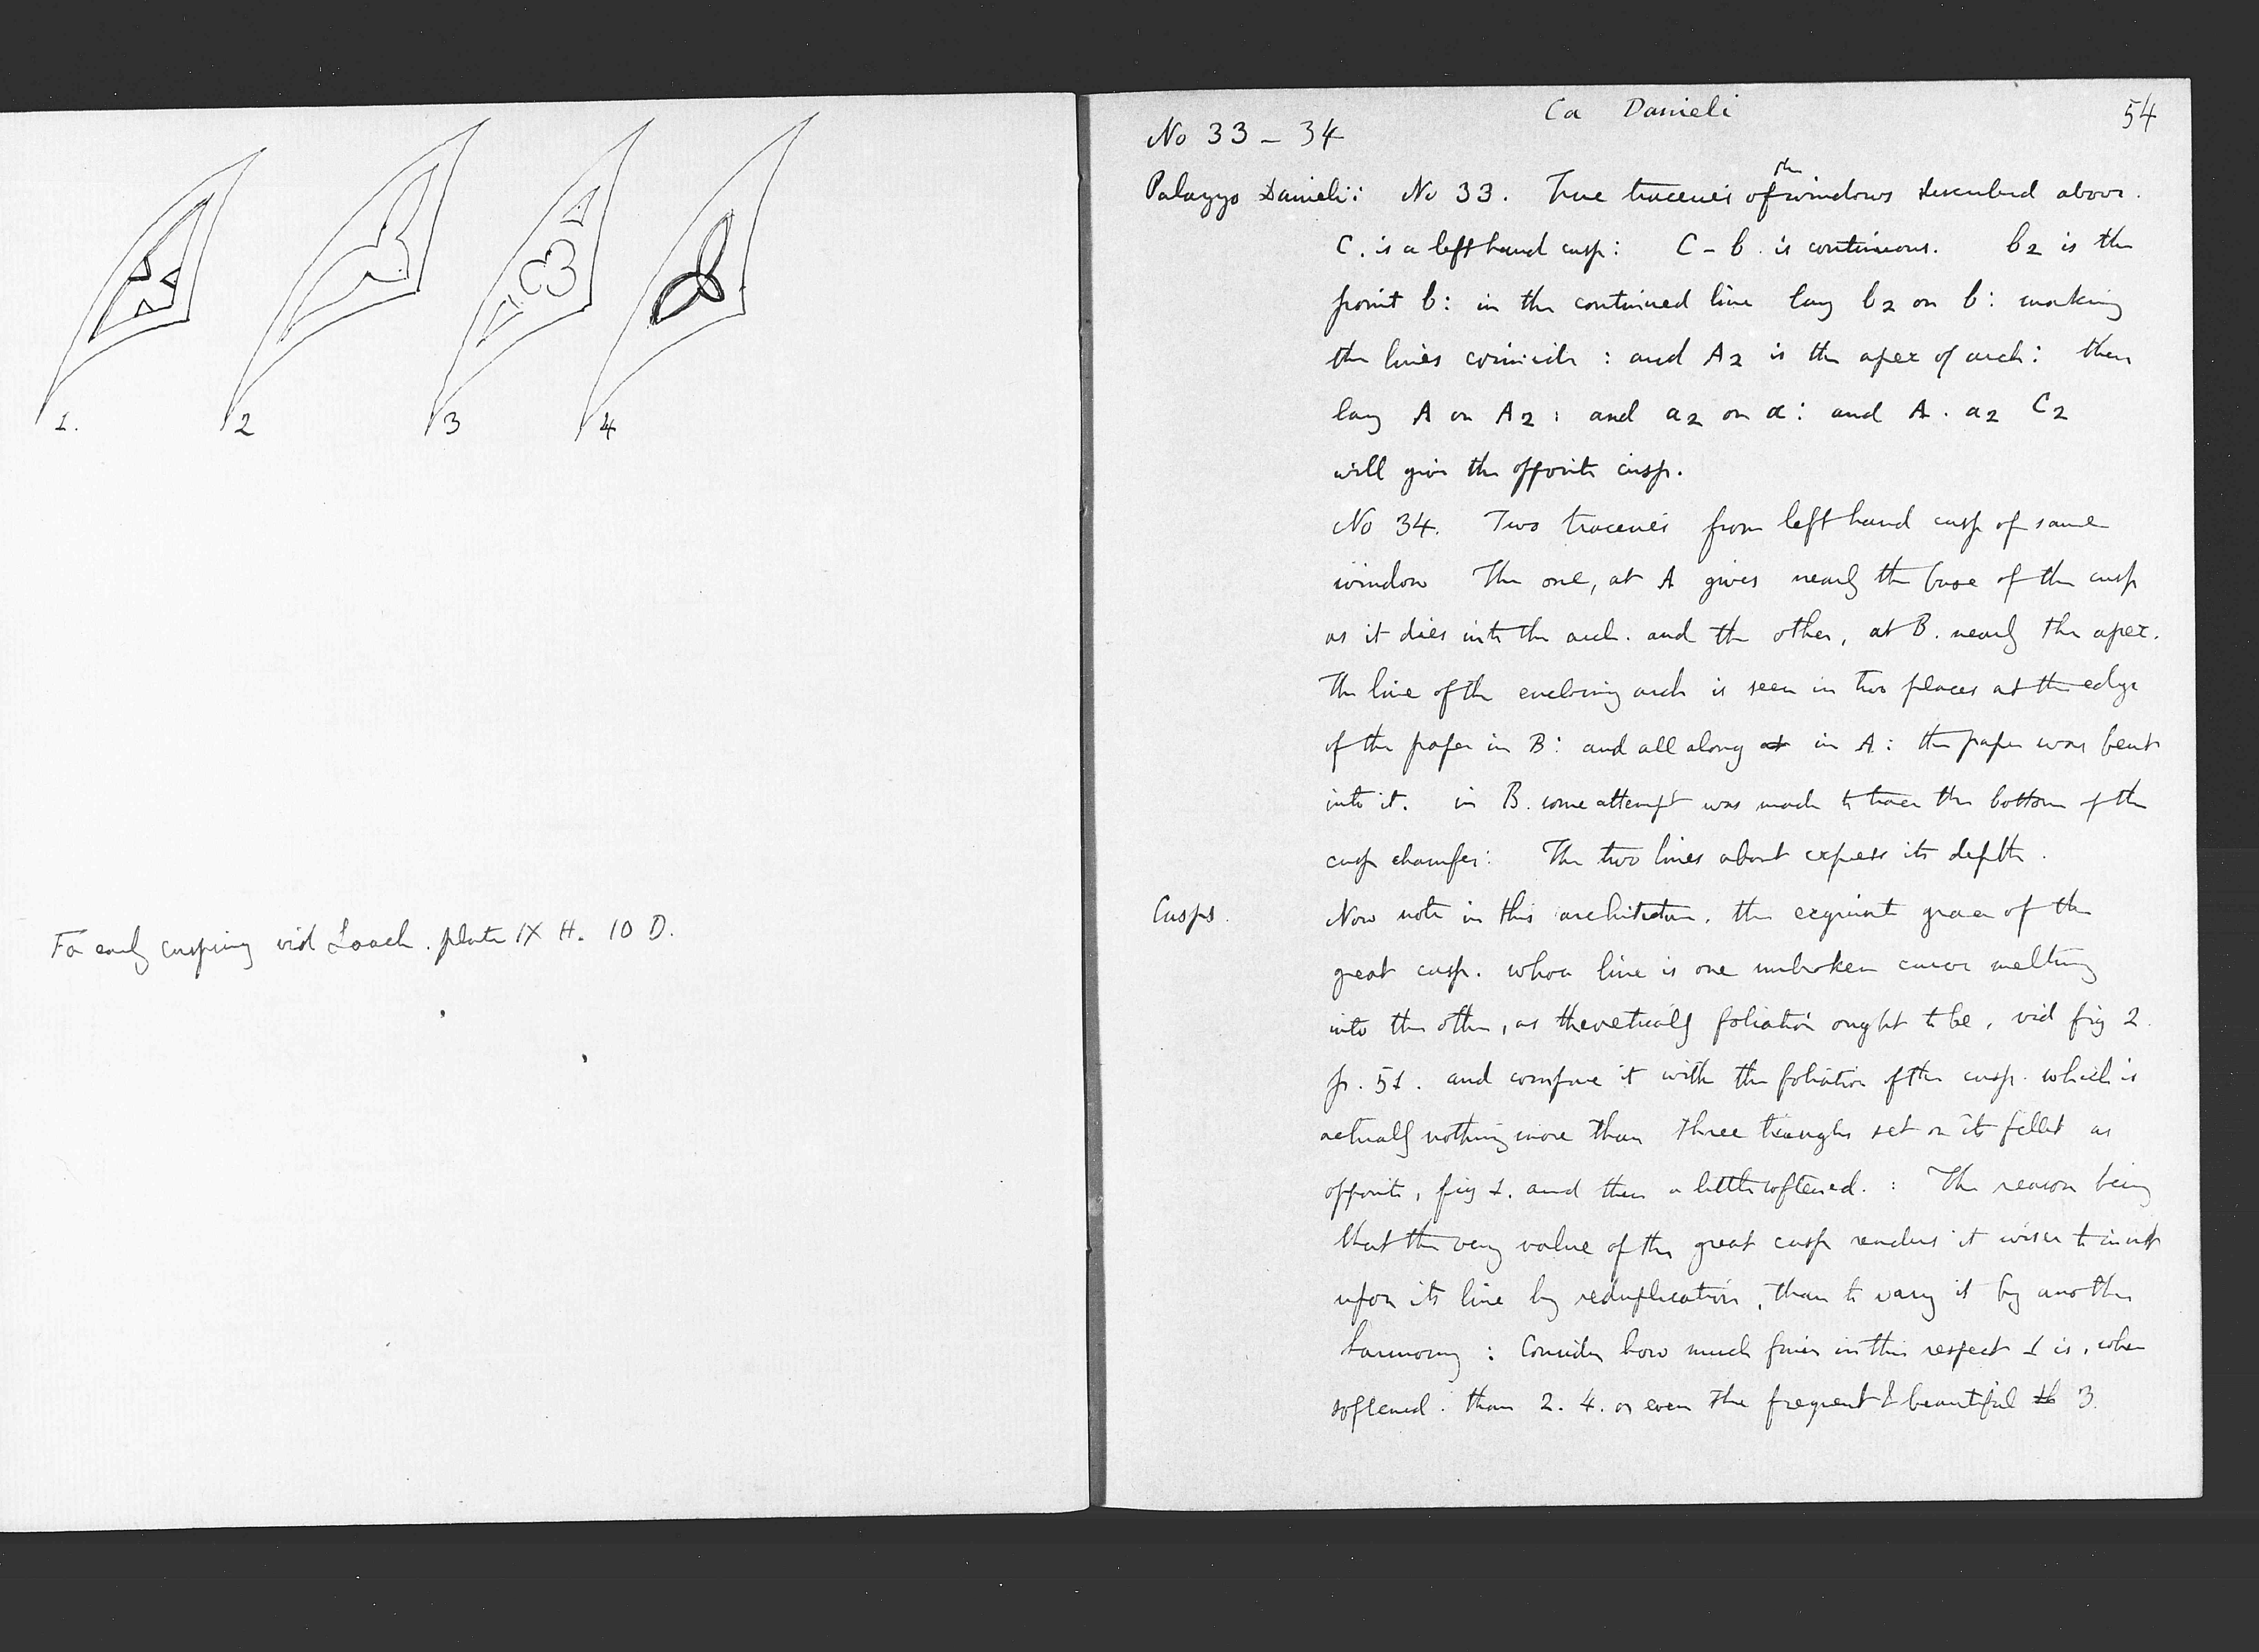 1.
2
3
4
For early cusping vid Laach. plate IX H. 10 D.
Ca Danieli
54
No 33 - 34
Palazzo Danieli: No 33. True traceries of the windows described above.
C. is a left hand cusp: C - b. is continuous. b2 is the
point b: in the continued line lay b2 on b: making
the lines coincide: and A2 is the apex of arch: then
lay A on A2: and a2 on a: and A. a2 C2
will give the opposite cusp.
No 34. Two traceries from left hand cusp of same
window The one, at A gives nearly the base of the cusp
as it dies into the arch. and the other, at B. nearly the apex.
The line of the enclosing arch is seen in two places at the edge
of the paper in B: and all along at in A: the paper was bent
into it. in B. some attempt was made to trace the bottom of the
cusp chamfer: The two lines about express its depth.
Cusps.
Now note in this architecture, the exquisite grace of the
great cusp. whose line is one unbroken curve melting
into the other, as theoretically foliation ought to be, vid fig 2.
p. 51. and compare it with the foliation of the cusp. which is
actually nothing more than three triangles set on its fillet as
opposite, fig 1. and then a little softened.: The reason being
that the very value of the great cusp renders it wiser to insist
upon its line by reduplication, than to vary it by another
harmony: Consider how much finer in this respect 1 is, when
softened. than 2. 4. or even the frequent & beautiful th 3.